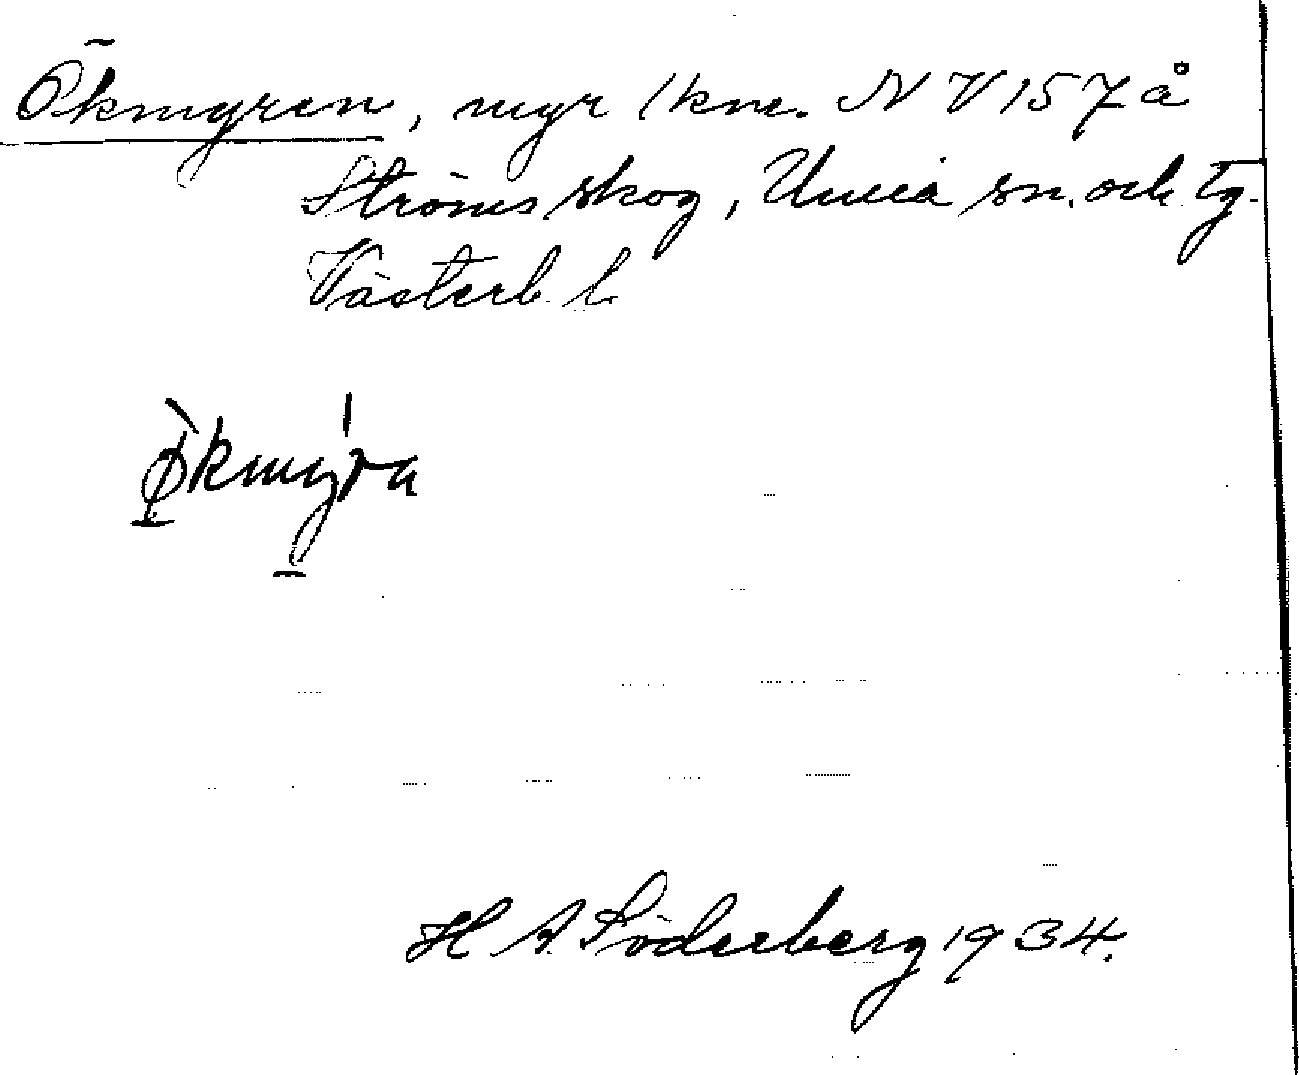 Ökmyren, myr 1 km. NV 157 å
Ströms skog, Umeå sn. och tg.
Västerb. l.
Økmyra
H A Söderberg 1934.